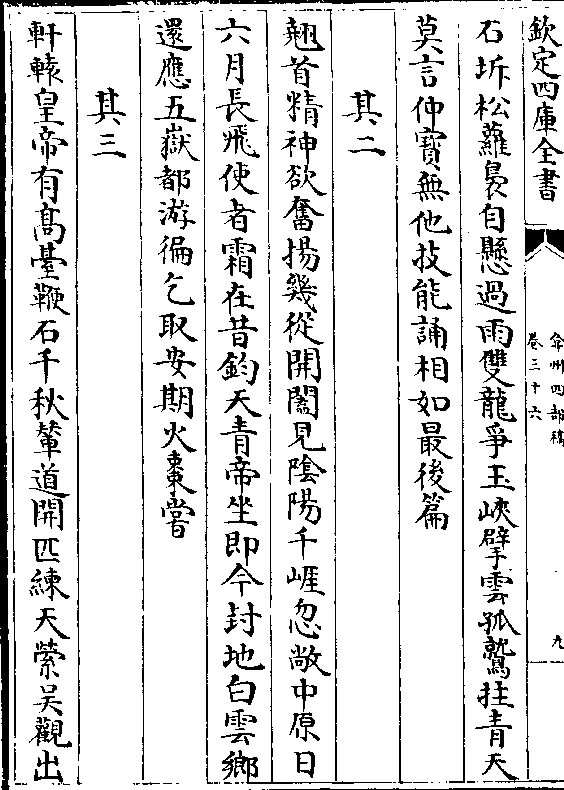 欽定四庫全書
弇州四部稿
卷三十六
九
石坼松蘿裊自懸過雨雙龍爭玉峽擘雲孤鷲拄青天
莫言仲寶無他技能誦相如最後篇
其二
翹首精神欲奮揚幾從開闔見陰陽千崕忽敞中原日
六月長飛使者霜在昔鈞天青帝坐即今封地白雲鄉
還應五嶽都游徧乞取安期火棗嘗
其三
軒轅皇帝有髙臺鞭石千秋輦道開匹練天縈吴觀出